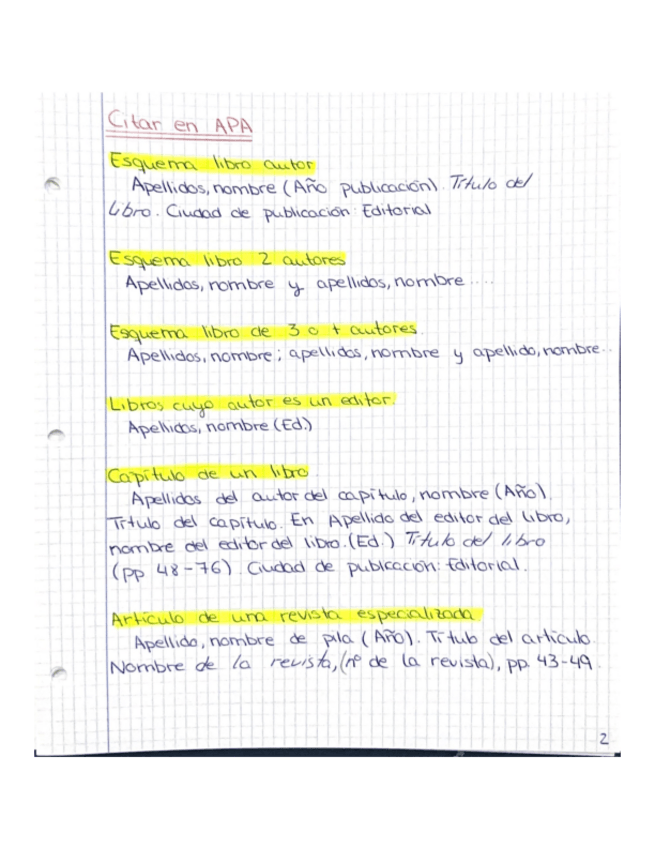 Citar en APA
Esquema libro autor
Apellidos, nombre (Año publicación). Título del
Libro. Ciudad de publicación: Editorial
Esquema libro 2 autores
Apellidos, nombre y apellidos, nombre ....
Esquema libro de 3 o + autores.
Apellidos, nombre; apellidos, nombre y apellido, nombre...
Libros cuyo autor es un editor.
Apellidos, nombre (Ed.)
Capítulo de un libro
Apellidos del autor del capítulo, nombre (Año).
Título del capítulo. En Apellido del editor del libro,
nombre del editor del libro. (Ed.) Título del libro
(pp 48-76). Ciudad de publicación: Editorial.
Artículo de una revista especializada
Apellido, nombre de pila (Año). Título del artículo.
Nombre de la revista, (nº de la revista), pp. 43-49.
2